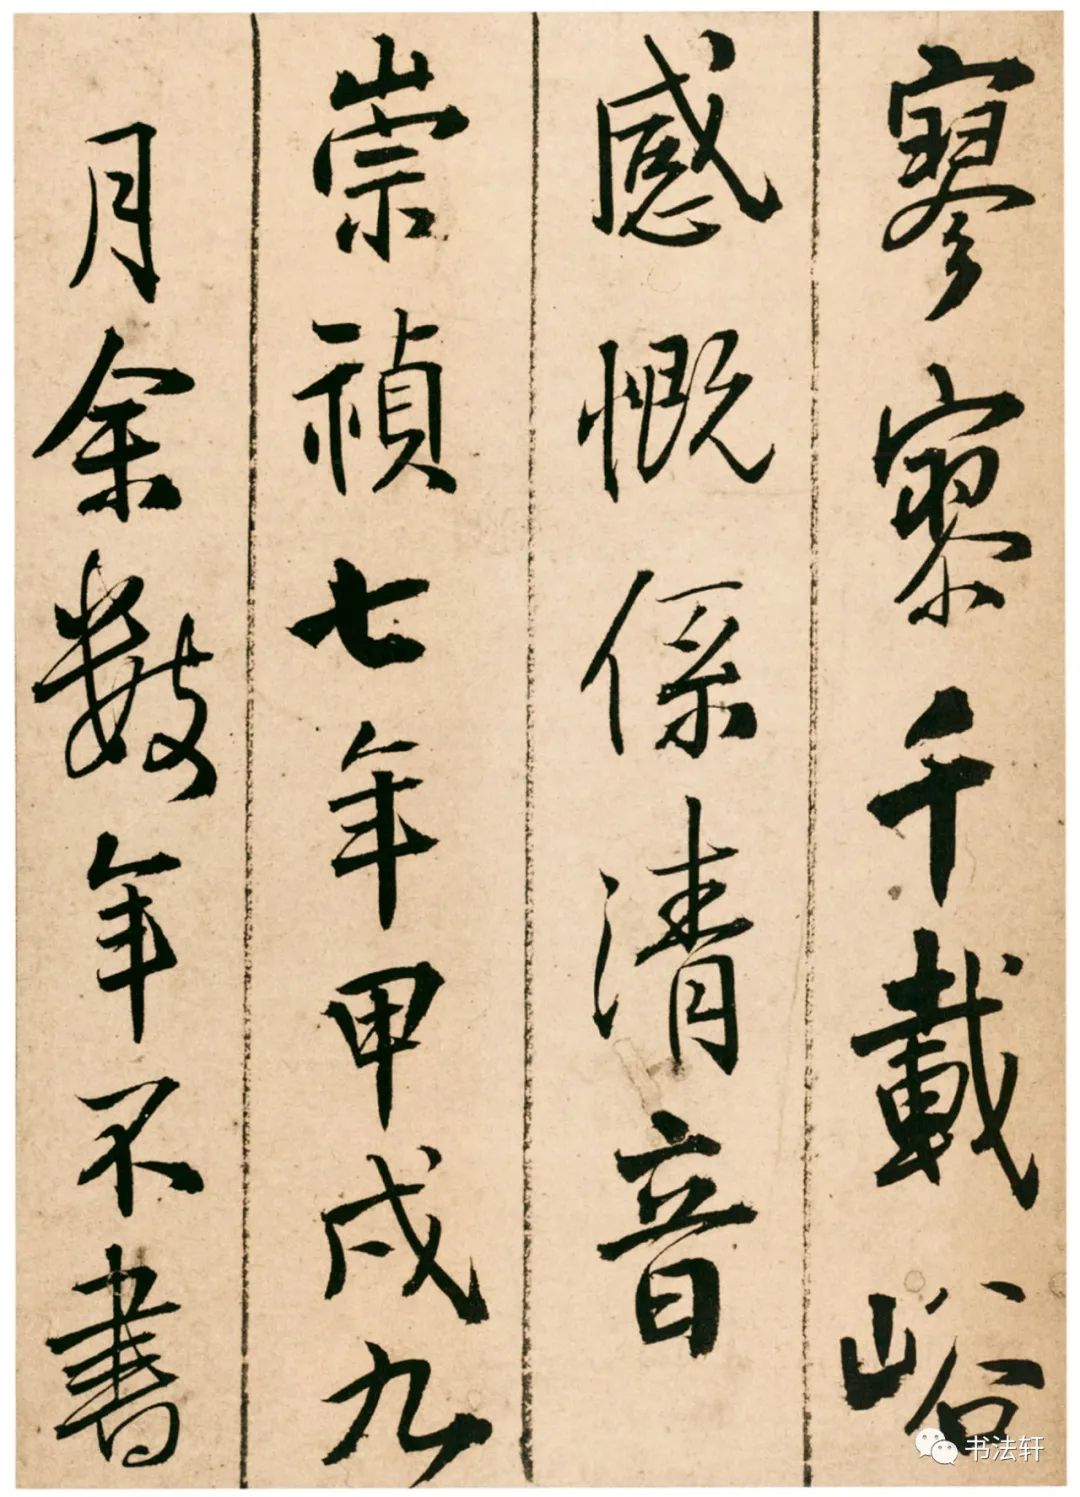 寥寥千載峪
感慨係清音
崇禎七年甲戌九
月余數年不書
书法轩